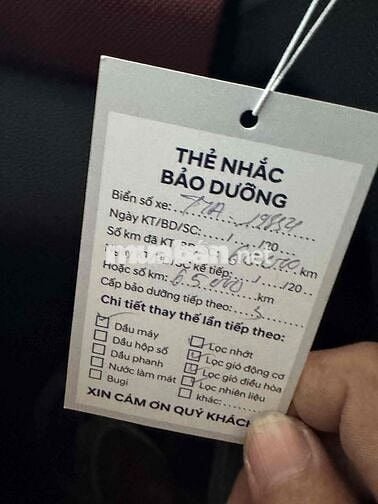 THẺ NHẮC
BẢO DƯỠNG
Biển số xe:
Ngày KT/BD/SC: / /20
Số km đã KT km
kế tiếp: / /20
Hoặc số km: 65.000 km
Cấp bảo dưỡng tiếp theo:
Chi tiết thay thế lần tiếp theo:
Dầu máy
Lọc nhớt
Dầu hộp số
Lọc gió động cơ
Dầu phanh
Lọc gió điều hòa
Nước làm mát
Lọc nhiên liệu
Bugi
khác:
XIN CÁM ƠN QUÝ KHÁCH
muaban.net